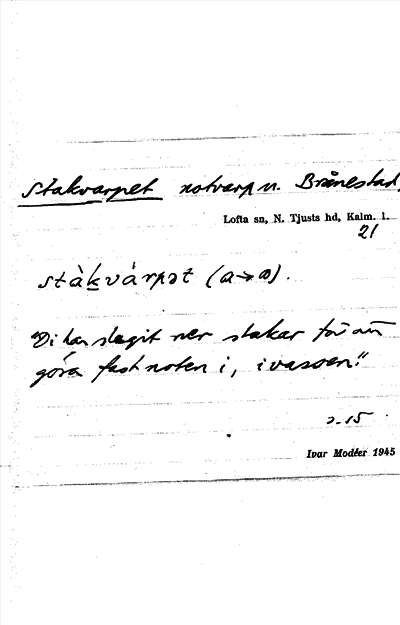 Stakvarpet notvarp n. Brånestad,
Lofta sn, N. Tjusts hd, Kalm. l.
21
stàkvárpət (a→ɑ).
"Di har slagit ner stakar för att
göra fast noten i, i vassen."
s. 15
Ivar Modéer 1945